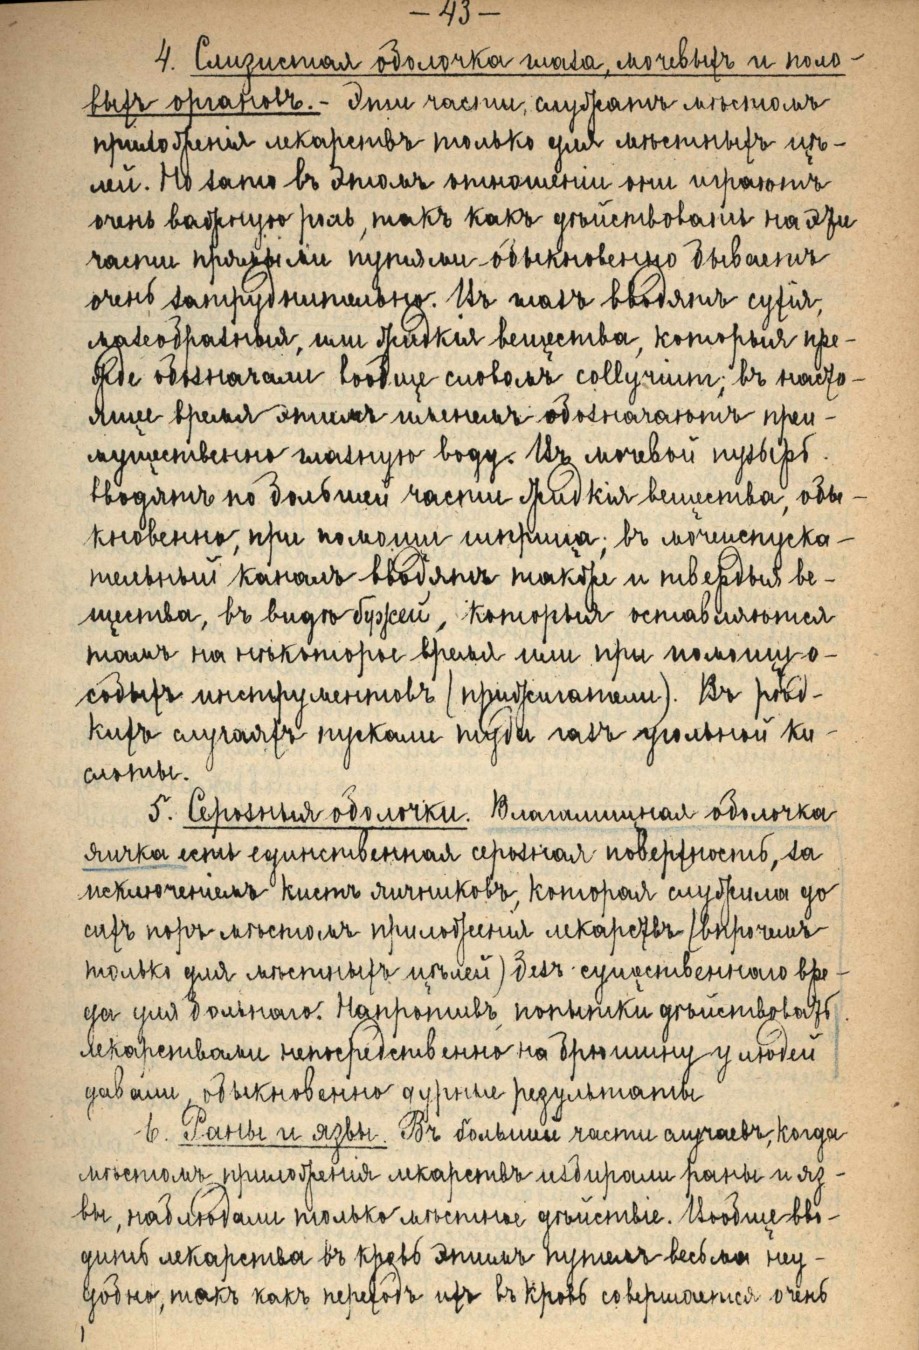 — 43 —
4. Слизистая оболочка глаза, мочевыхъ и поло-
выхъ органовъ. – Эти части, служатъ мѣстомъ
приложенія лекарствъ только для мѣстныхъ цѣ-
лей. Но зато въ этомъ отношеніи они играютъ
очень важную роль, такъ какъ дѣйствовать на эти
части прямыми путями обыкновенно бываетъ
очень затруднительно. Въ глазъ вводятъ сухія,
мазеобразныя, или жидкія вещества, которыя пре-
жде обозначали вообще словомъ collyrium; въ насто-
ящее время этимъ именемъ обозначаютъ преи-
мущественно глазную воду. Въ мочевой пузырь
вводятъ по большей части жидкія вещества, обы-
кновенно, при помощи шприца; въ мочеиспуска-
тельный каналъ вводятъ также и твердыя ве-
щества, въ видѣ бужей, которыя оставляются
тамъ на нѣкоторое время или при помощи о-
собыхъ инструментовъ (прижигатели). Въ рѣд-
кихъ случаяхъ пускали туда газъ угольной ки-
слоты.
5. Серозныя оболочки. Влагалищная оболочка
яичка есть единственная серозная поверхность, за
исключеніемъ кистъ яичниковъ, которая служила до
сихъ поръ мѣстомъ приложенія лекарствъ (впрочемъ
только для мѣстныхъ цѣлей) безъ существеннаго вре-
да для больнаго. Напротивъ, попытки дѣйствовать
лекарствами непосредственно на брюшину у людей
давали, обыкновенно дурные результаты
6. Раны и язвы. Въ большей части случаевъ, когда
мѣстомъ приложенія лекарствъ избирали раны и яз-
вы, наблюдали только мѣстное дѣйствіе. Вообще вво-
дить лекарства въ кровь этимъ путемъ весьма неу-
добно, такъ какъ переходъ ихъ въ кровь совершается очень